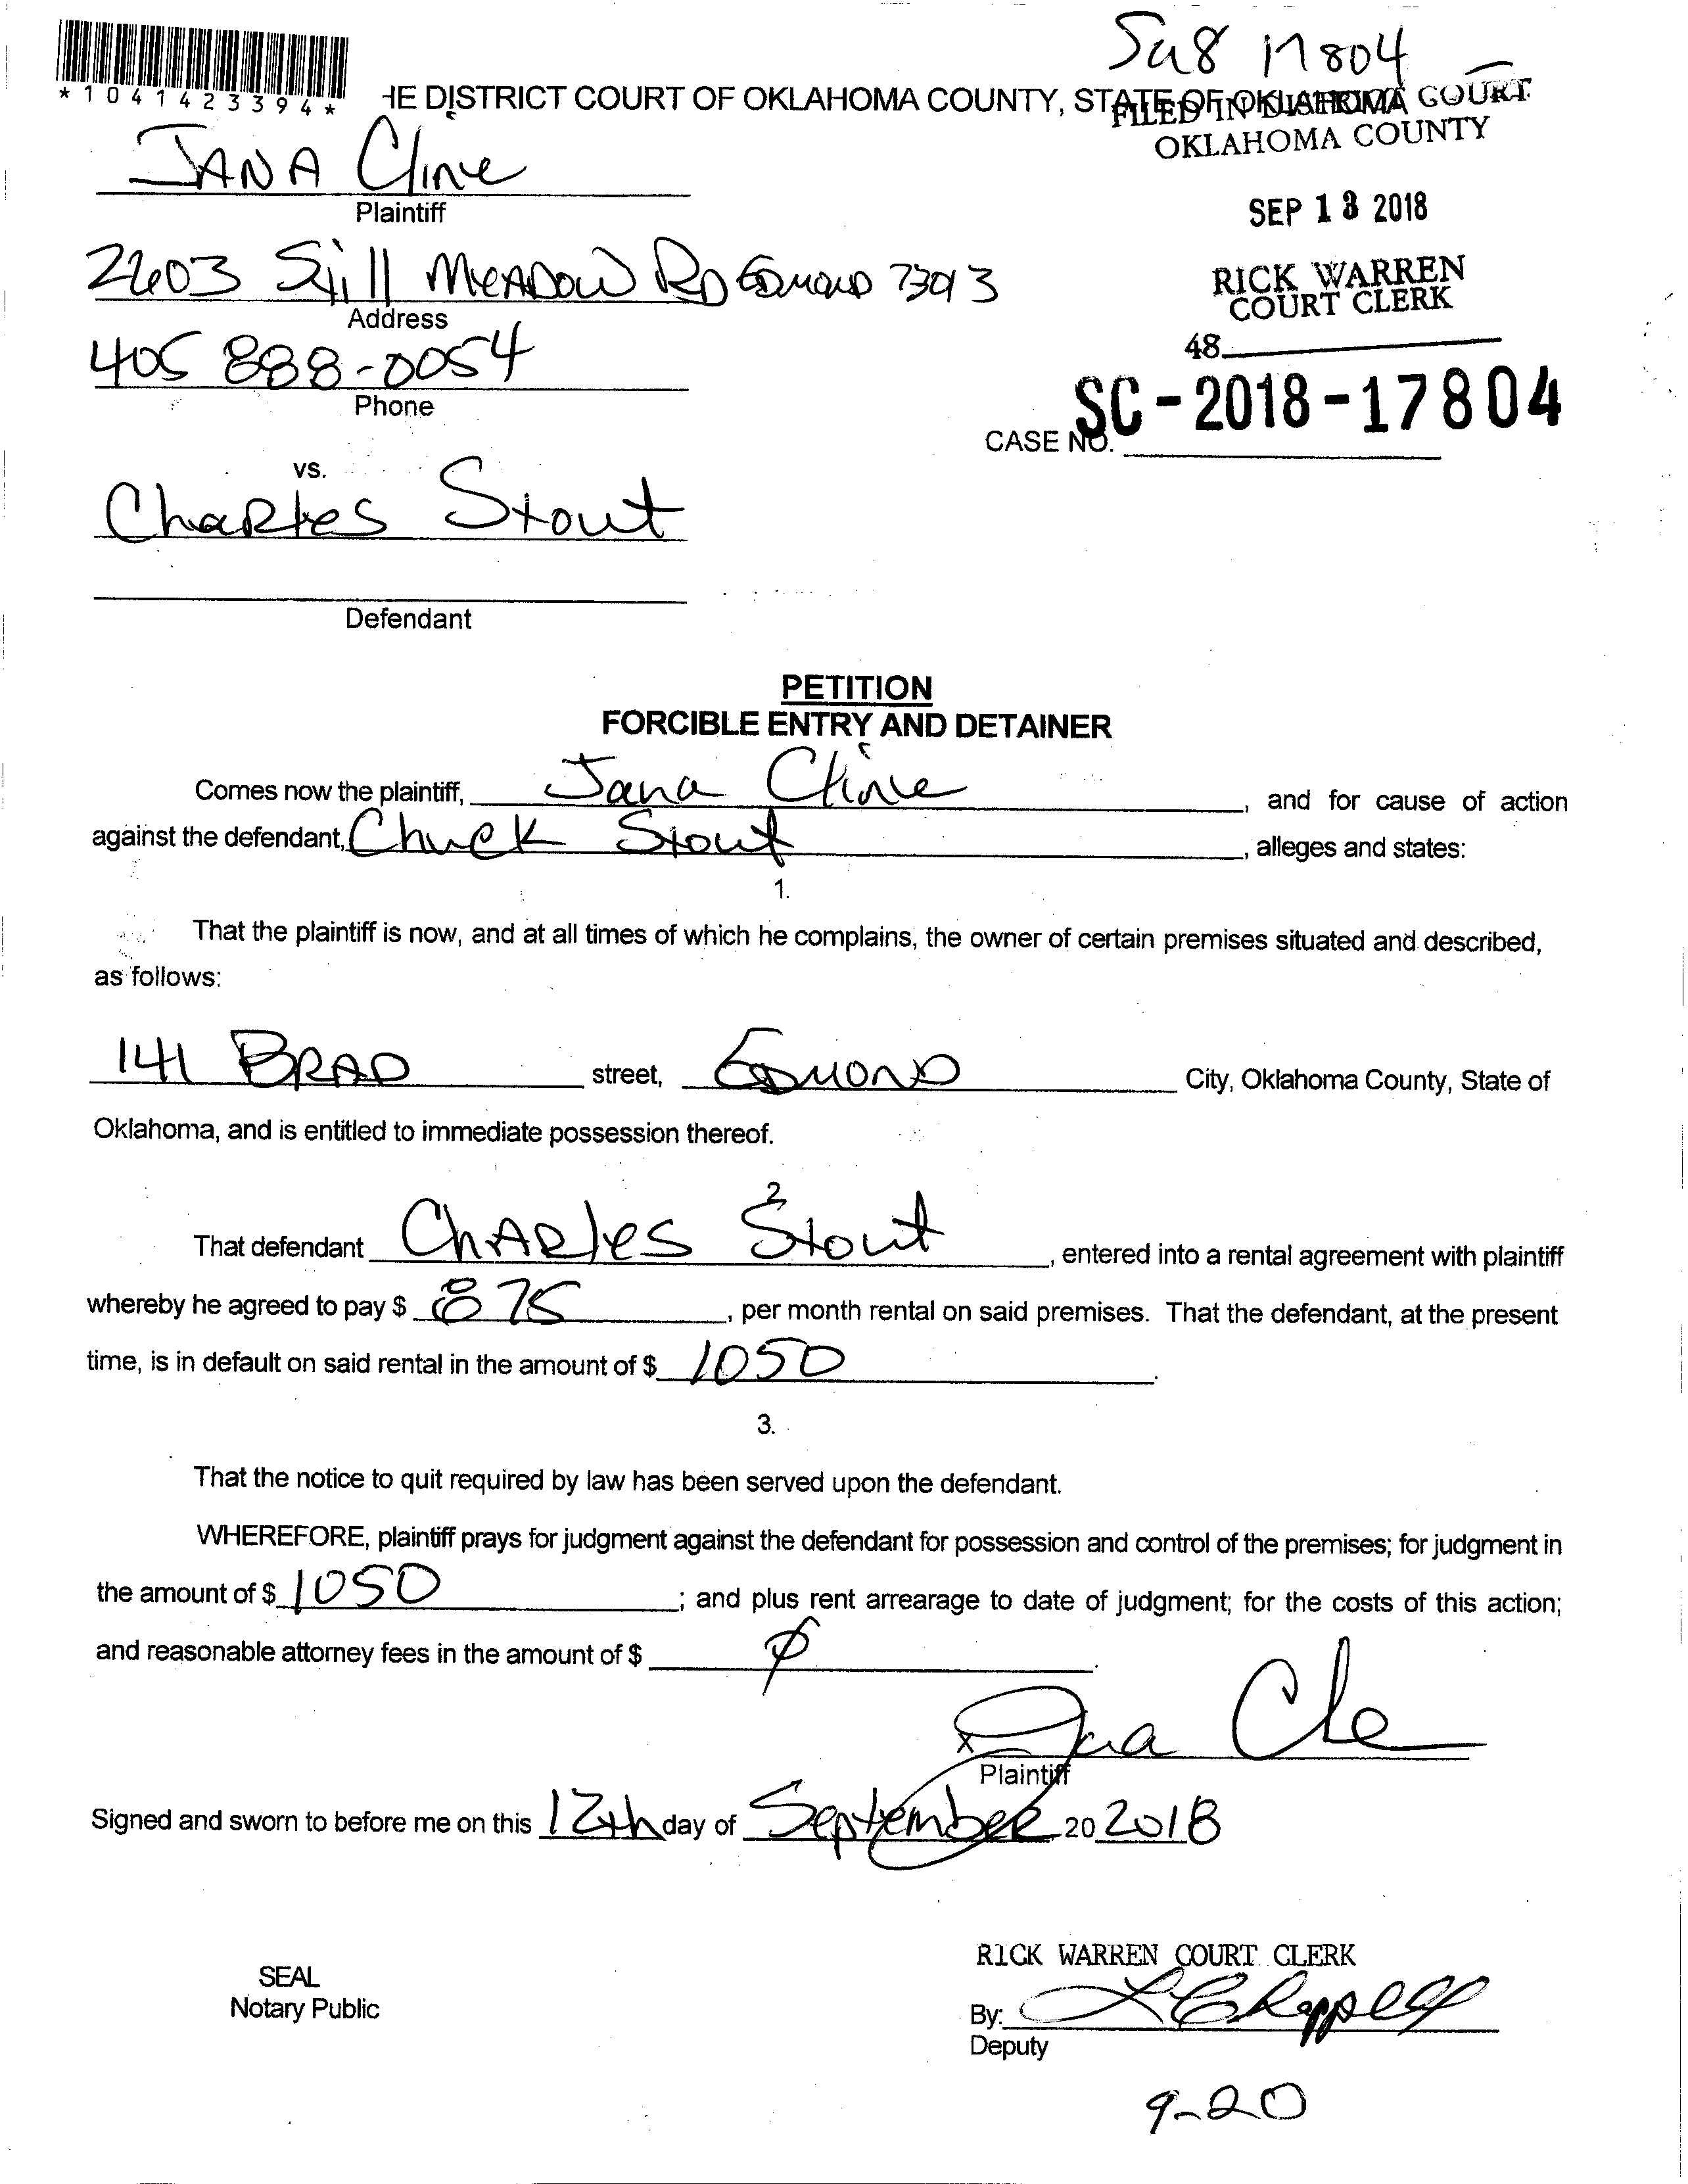 Sc18 17804
*1041423394*
HE DISTRICT COURT OF OKLAHOMA COUNTY, STATE OF OKLAHOMA
FILED IN DISTRICT COURT
OKLAHOMA COUNTY
JANA Cline
Plaintiff
SEP 13 2018
2603 Still MEADOW RD EDMOND 73013
Address
RICK WARREN
COURT CLERK
405 888-0054
Phone
48
SC-2018-17804
CASE NO.
vs.
Charles Stout
Defendant
PETITION
FORCIBLE ENTRY AND DETAINER
Comes now the plaintiff, Jana Cline, and for cause of action
against the defendant, Chuck Stout, alleges and states:
1.
That the plaintiff is now, and at all times of which he complains, the owner of certain premises situated and described,
as follows:
141 BRAD street, EDMOND City, Oklahoma County, State of
Oklahoma, and is entitled to immediate possession thereof.
2.
That defendant CHARles Stout, entered into a rental agreement with plaintiff
whereby he agreed to pay $ 875, per month rental on said premises. That the defendant, at the present
time, is in default on said rental in the amount of $ 1050.
3.
That the notice to quit required by law has been served upon the defendant.
WHEREFORE, plaintiff prays for judgment against the defendant for possession and control of the premises; for judgment in
the amount of $ 1050; and plus rent arrearage to date of judgment; for the costs of this action;
and reasonable attorney fees in the amount of $ ∅.
x Jana Cline
Plaintiff
Signed and sworn to before me on this 12th day of September, 20 2018
RICK WARREN COURT CLERK
SEAL
Notary Public
By:
Deputy
9-20